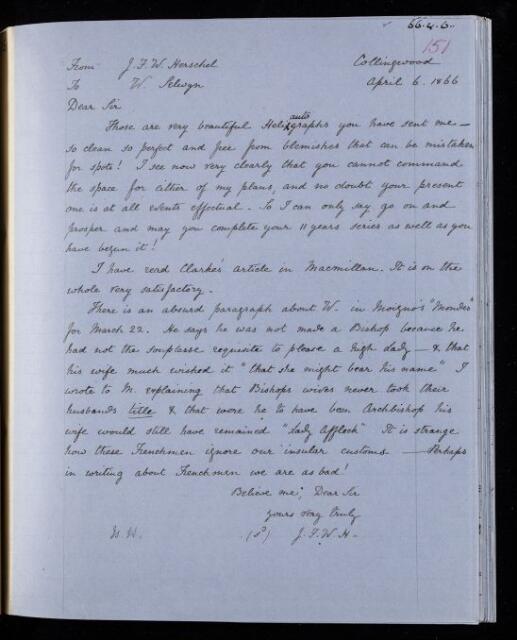 66.4.6.
151
From J. F. W. Herschel Collingwood
To W. Selwyn April 6. 1866
Dear Sir
Those are very beautiful Heliautographs you have sent me —
so clean so perfect and free from blemishes that can be mistaken
for spots! I see now very clearly that you cannot command
the space for either of my plans, and no doubt your present
one is at all events effectual. So I can only say go on and
prosper and may you complete your 11 years series as well as you
have begun it!
I have read Clarke's article in Macmillan. It is on the
whole very satisfactory.
There is an absurd paragraph about W. in Moigno's "Mondes"
for March 22. He says he was not made a Bishop because he
had not the souplesse requisite to please a high lady — & that
his wife much wished it "that she might bear his name" I
wrote to M. explaining that Bishops wives never took their
husbands title & that were he to have been Archbishop his
wife would still have remained "Lady Affleck" It is strange
how these Frenchmen ignore our insular customs — Perhaps
in writing about Frenchmen we are as bad!
Believe me, Dear Sir
yours very truly
(Sd) J. F. W. H.